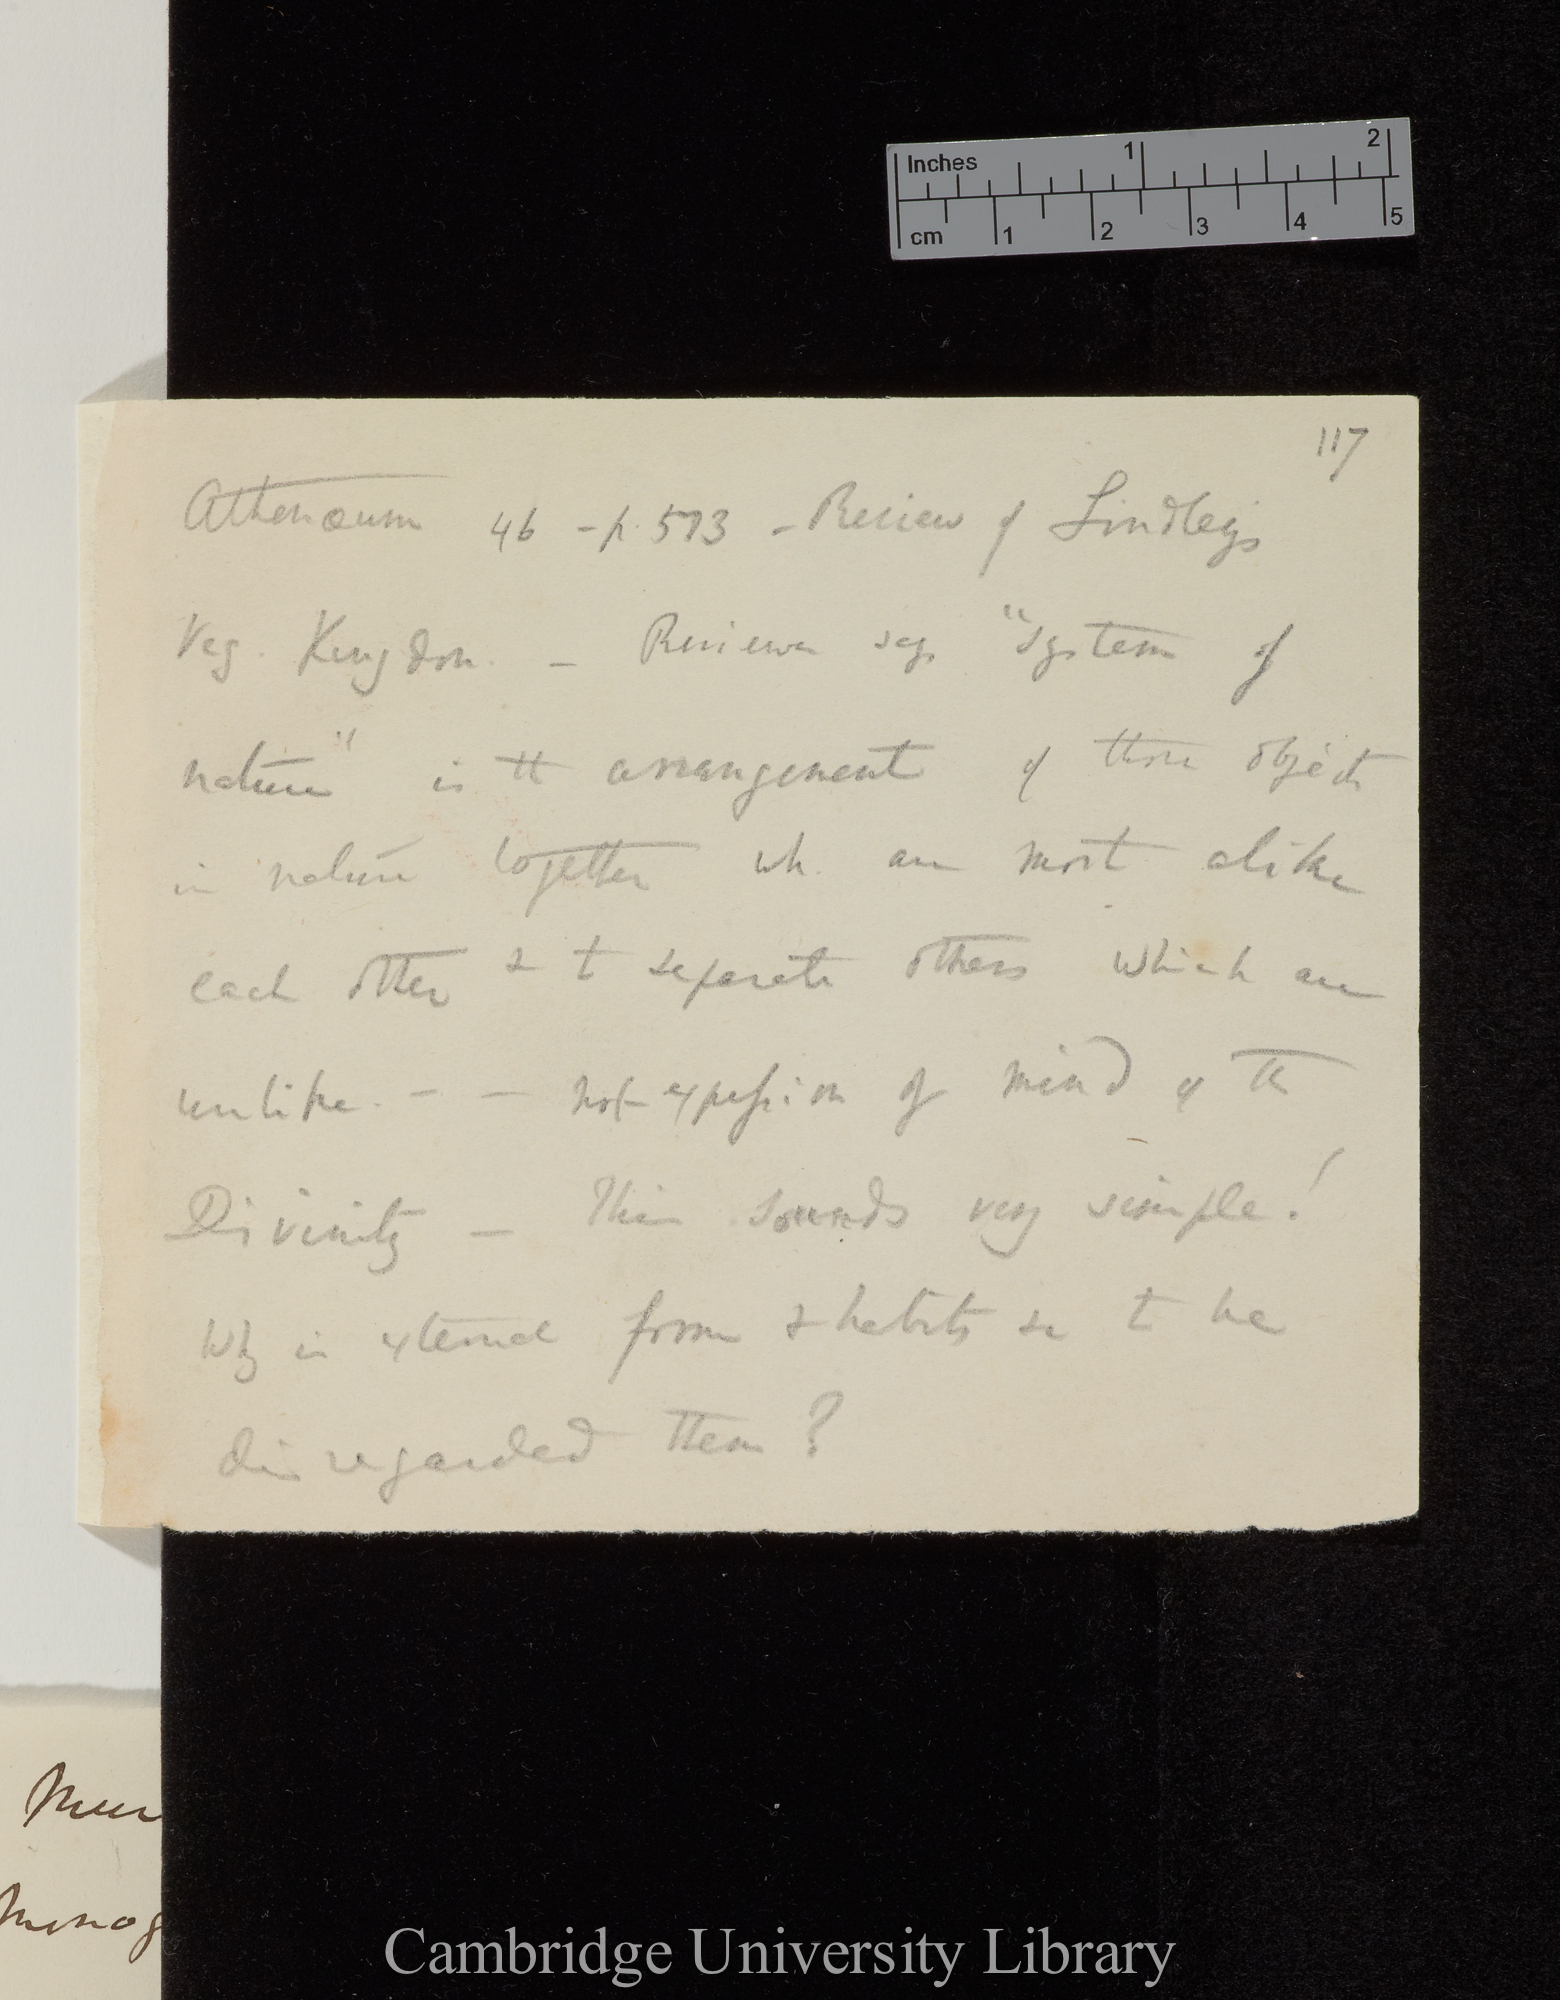 Inches 1 2
cm 1 2 3 4 5
117
Athenæum 46 - p. 573 - Review of Lindley's
Veg. Kingdom. - Reviewer says "system of
nature" is the arrangement of those objects
in nature together wh. are most alike
each other & to separate others which are
unlike. - - not expression of mind of the
Divinity - This sounds very simple!
Why is external form & habits &c to be
disregarded then?
Mur
Monog
Cambridge University Library